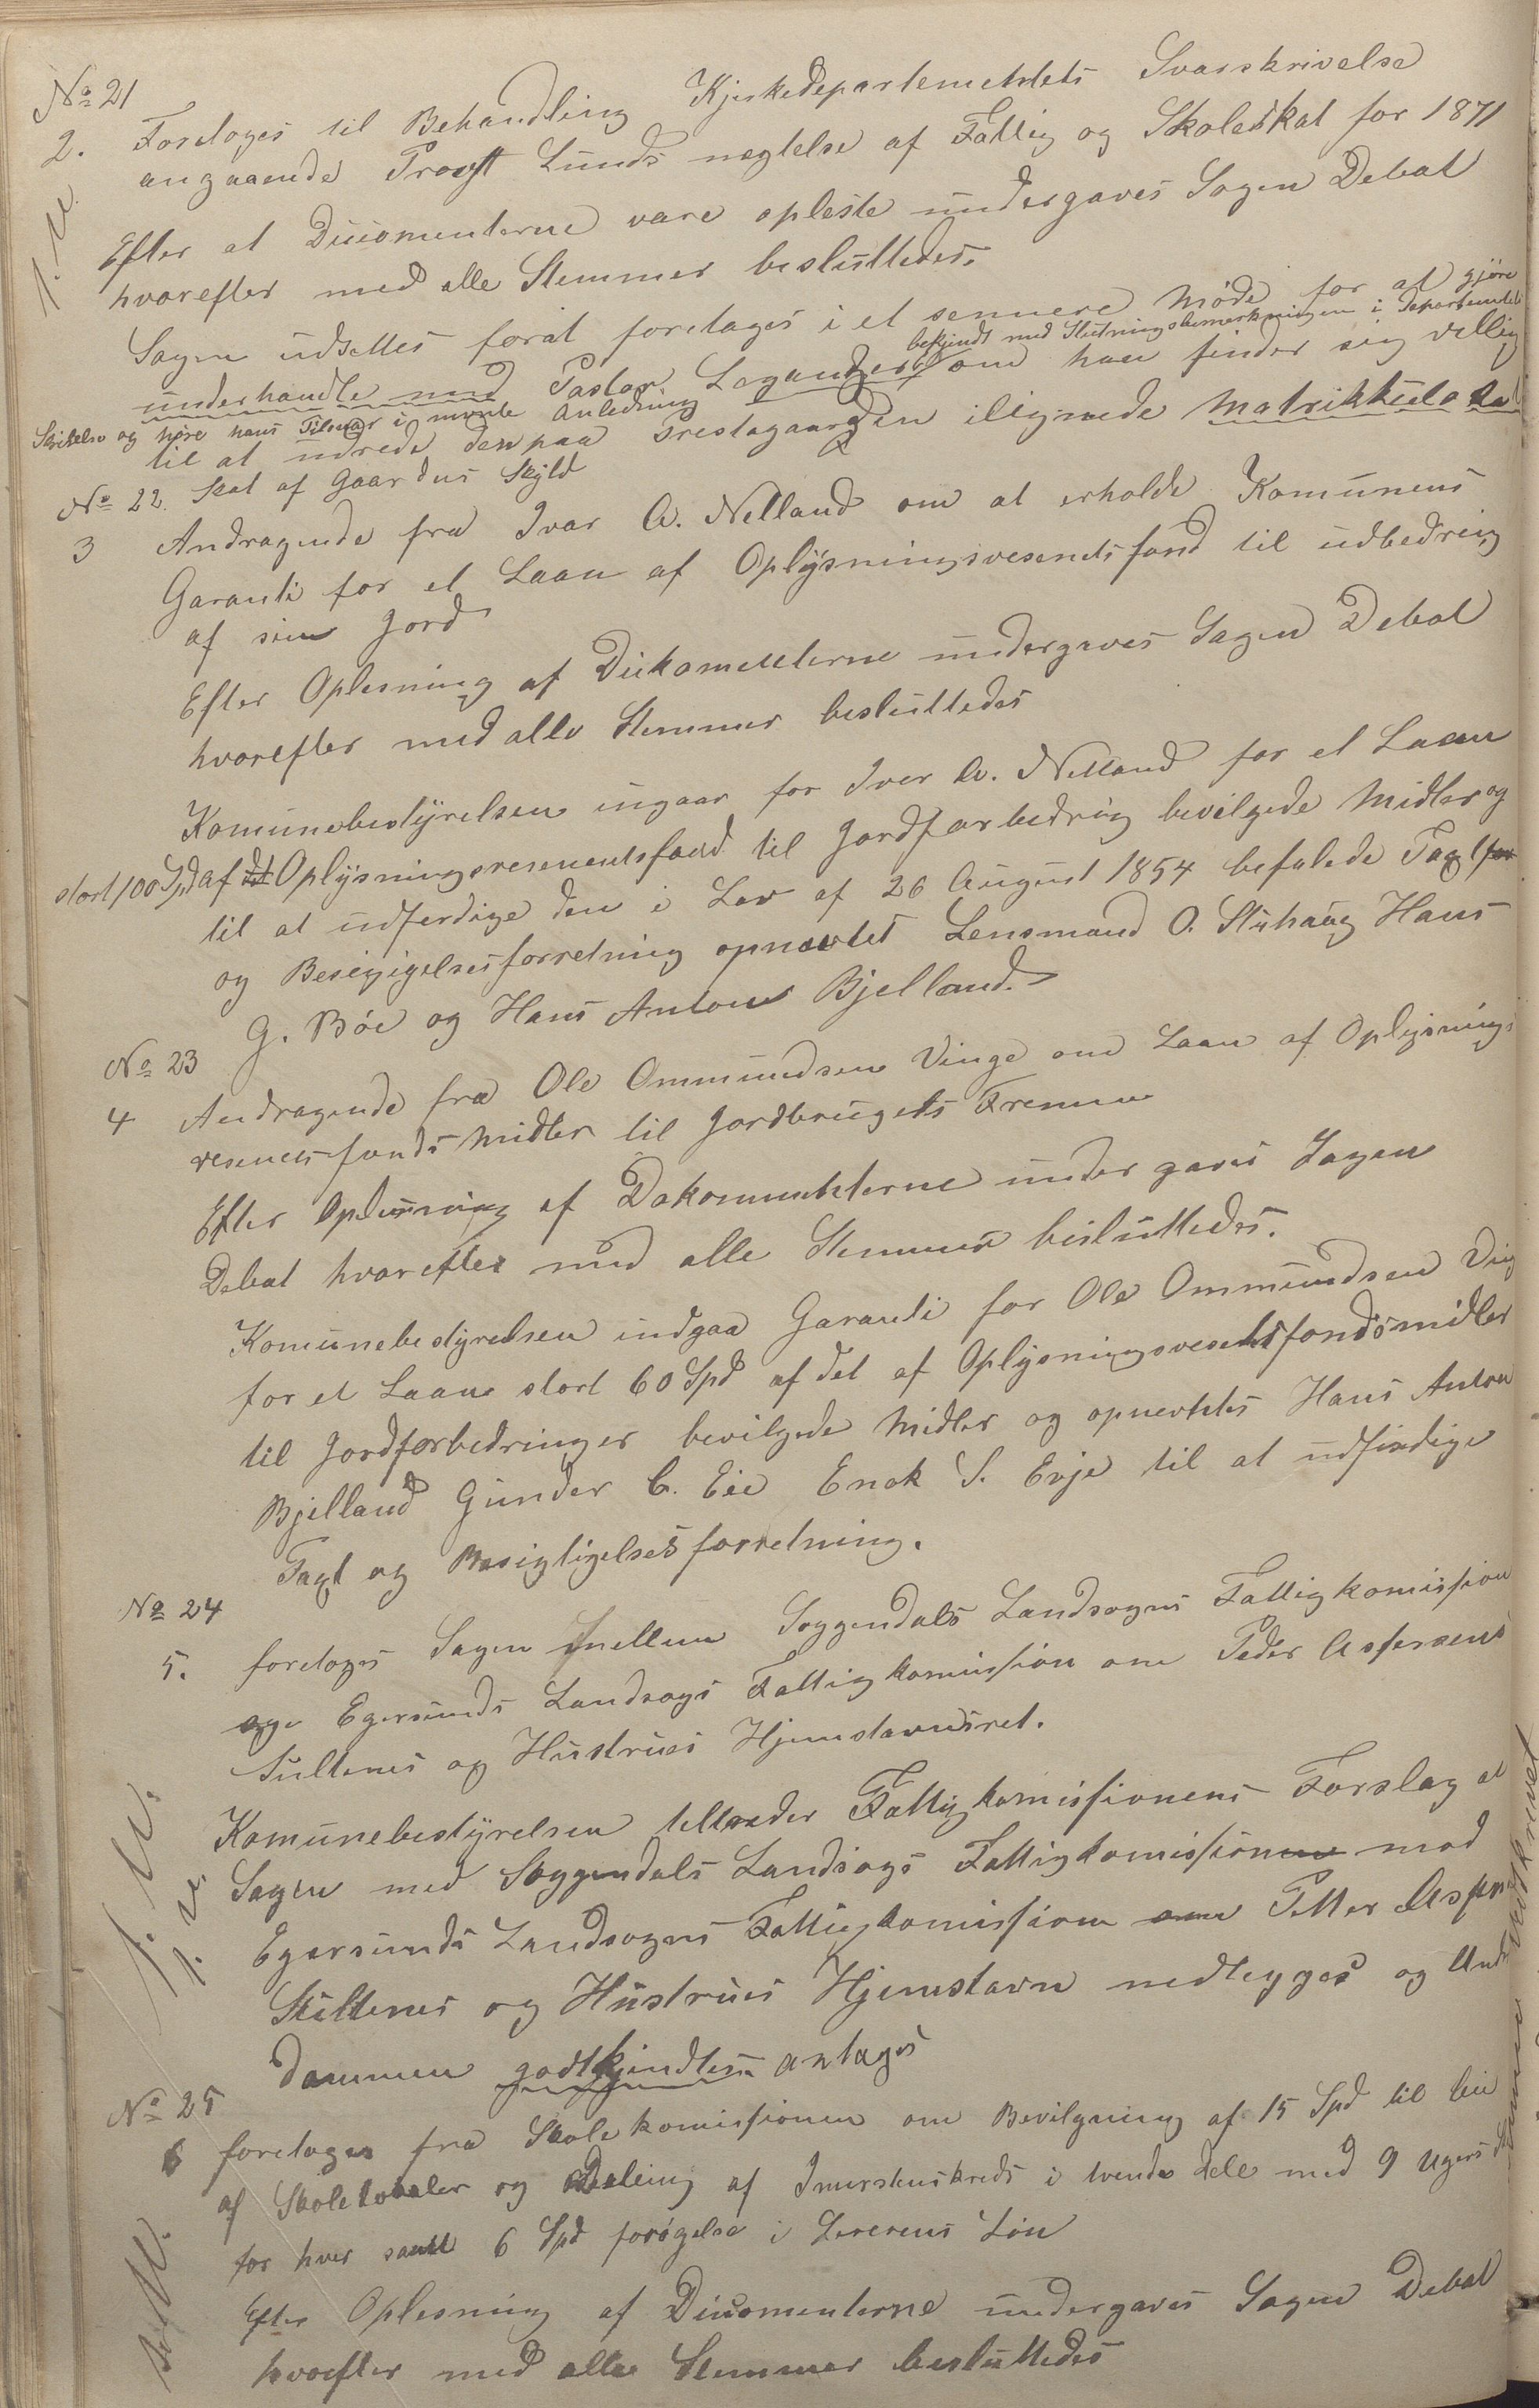 No 21
2. Foretoges til Behandling Kjerkedepartementets Svarskrivelse
angaaende Provst Lunds negtelse af Fattig og Skoleskat for 1871
Efter at Ducomenterne vare opleste undergaves Sagen Debat
hvorefter med alle Stemmer besluttedes.
Sagen udsettes forat foretages i et sennere Möde for at gjöre
bekjendt med Slutningsbemerkningen i Departementets
underhandle med Pastor Legander om han finder sig villig
Skrivelse og höre hans Tilsvar i nevnte Anledning
til at udrede den paa Prestegaarden ilignede Matrikkul
No 22. Skat af Gaardens Skyld
3 Andragende fra Ivar A. Nelland om at erholde Komunens
Garanti for et Laan af Oplysningsvesenetsfond til udbedring
af sin Jord
Efter Oplesning af Dukomenterne undergaves Sagen Debat
hvorefter med alle Stemmer besluttedes
Komunebestyrelsen ingaar for Iver A. Nelland for et Laan
stort 100 Spd af det Oplysningsvesenentsfond til Jordforbedring bevilgede Midler og
til at udferdige den i Lov af 26 August 1854 befalede Taxt for
og Besigtigelsesforretning opnevtes Lensmand O. Stuhaug Hans
G. Böe og Hans Anton Bjelland.
No 23
4 Andragende fra Ole Ommundsen Vinge om Laan af Oplysnings
vesenets fonds Midler til Jordbrugets Fremme
Efter Oplesning af Dokomenterne under gaves Sagen
Debat hvorefter med alle Stemmer besluttedes.
Komunebestyrelsen indgaa Garanti for Ole Ommundsen Ving
for et Laan stort 60 Spd af det af Oplysningsvesentsfondsmidler
til Jordforbedringer bevilgede Midler og opnevntes Hans Anton
Bjelland Gunder C. Eie Enok S. Evje til at udferdige
Taxt og Besigtigelsesforretning.
No 24
5. foretoges Sagen mellem Soggendals Landsogns Fattigkomission
og Egersunds Landsogs Fattigkomission om Peder Aspersens
og Hustrues Hjemstavnsret.
Komunebestyrelsen tilltreder Fattigkomissionens Forslag at
Sagen med Soggendals Landsogs Fattigkomission mod
Egersunds Landsogns Fattigkomission om Petter
og Hustrues Hjemstavn nedlegges og Und
dommen godtkjendtes antages
No 25
6 foretoges fra Skolekomissionen om Bevilgning af 15 Spd til leie
af Skolelokaler og Deling af kreds i tvende dele med 9 Ugers
for hver samt 6 Spd forögelse i Lererens Lön
Efter Oplesning af Ducomenterne undergaves Sagen Debat
hvoefter med alle Stemmer besluttedes